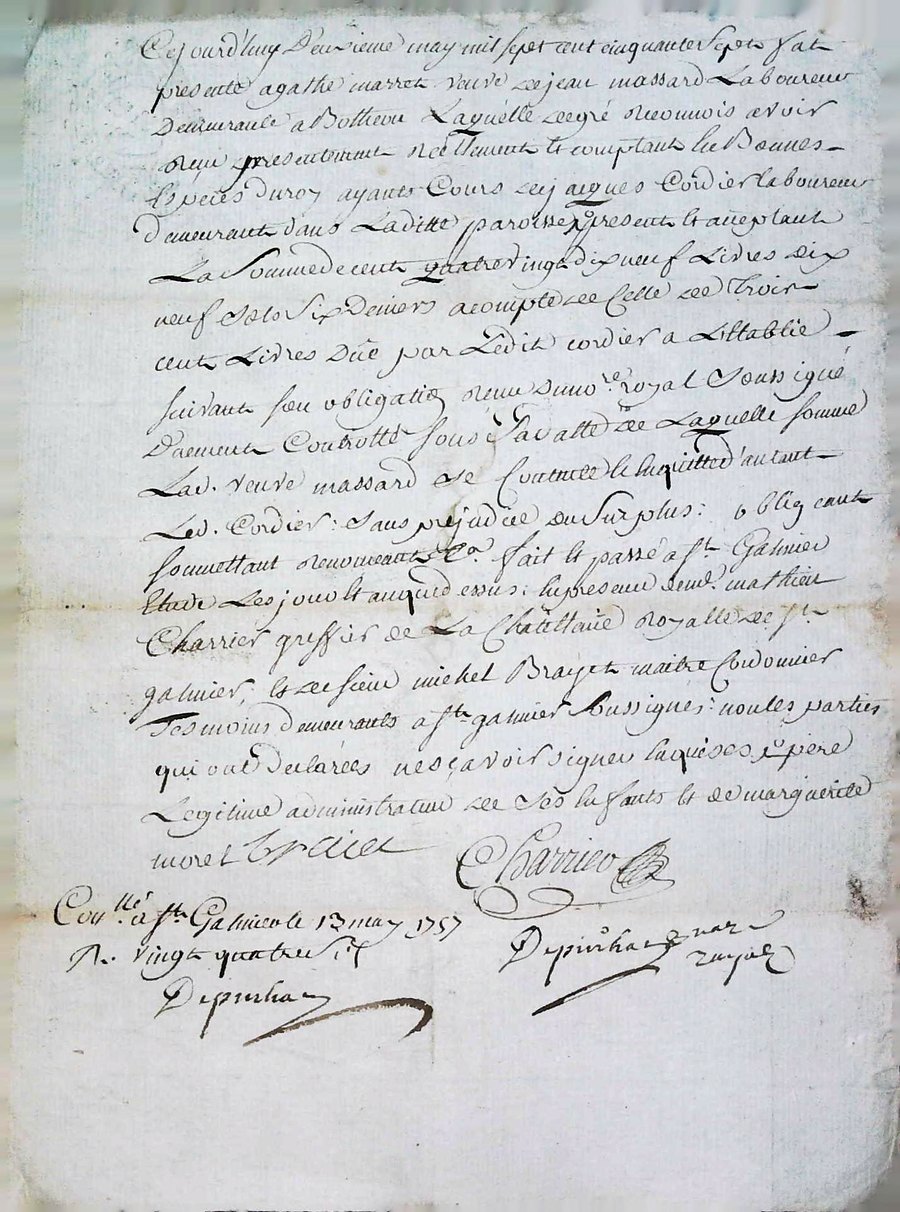 Cejourd'huy Deuxieme may mil sept cent cinquante sept fut
presente agathe marret veuve de jean massard Laboureur
Demeurante a Botheon Laquelle de gré reconnois avoir
reçu presentement reellement et comptant en Bonnes
Especes du roy ayants Cours de jacques Cordier laboureur
demeurant dans Laditte paroisse present et acceptant
La Somme de cent quatre vingt dix neuf Livres dix
neuf sols Six Deniers acompte de Celle de Trois
cent Livres Düe par Ledit cordier a L'Etablie
suivant son obligation reçue du no.re royal Soussigné
Duement Controllé sous Sa datte de Laquelle somme
Lad. veuve massard se Contente en quitte d'autant
Led. Cordier : sans prejudice du Surplus : obligeant
soumettant renonceant &a. fait et passé a st. Galmier
Etude Les jour et an que dessus : en presence de me. mathieu
Charrier greffier de La Chatellanie Royalle de st.
galmier, et de sieur michel Brayet maitre Cordonnier
Tesmoins demeurants a st. galmier soussignés : non les parties
qui ont declarées ne sçavoir signer enquises père
Legitime administrateur de ses enfants et de marguerite
moret Braiet Charrier
Con.llé a st. Galmier le 13 may 1757
R. vingt quatre s
Depuihac
Depuihac nore
royal